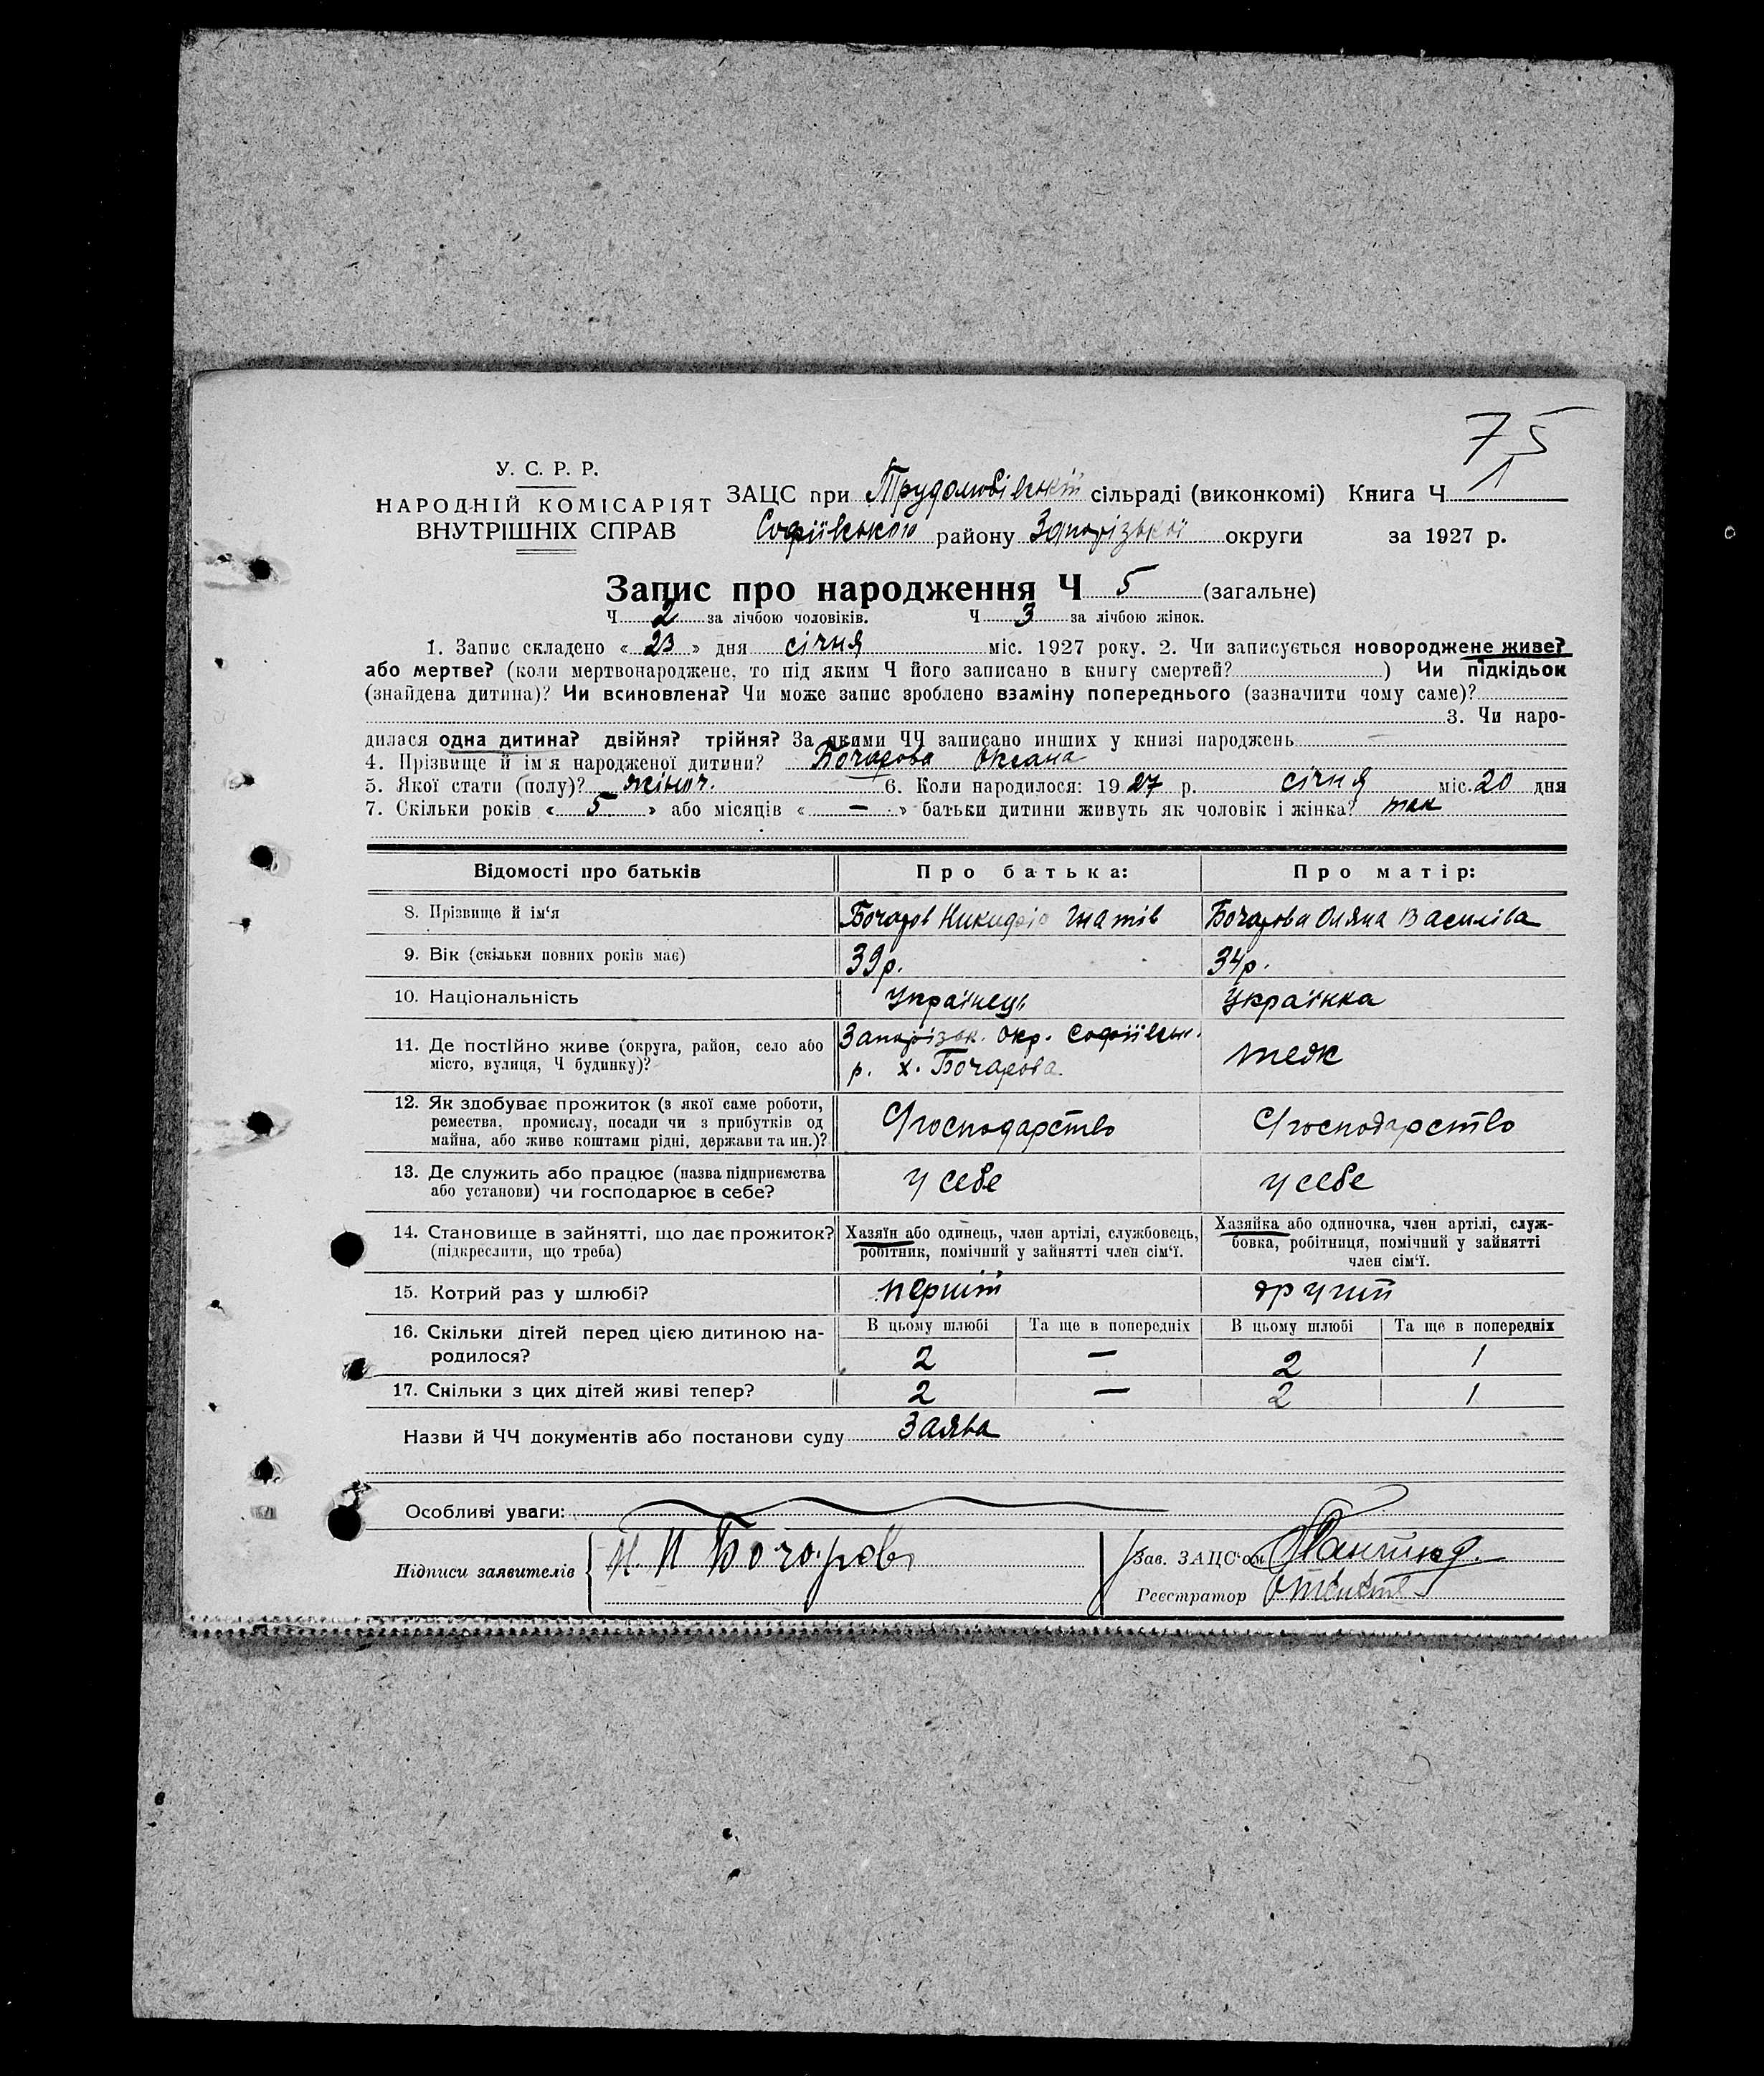 75
У. С. Р. Р.
НАРОДНІЙ КОМІСАРІЯТ
ВНУТРІШНІХ СПРАВ
ЗАЦС при Трудолюбівській сільраді (виконкомі) Книга Ч 1
Софіївського району Запорізької округи за 1927 р.
Запис про народження Ч 5 (загальне)
Ч 2 за лічбою чоловіків. Ч 3 за лічбою жінок.
1. Запис складено « 23 » дня січня міс. 1927 року. 2. Чи записується новороджене живе?
або мертве? (коли мертвонароджене, то під яким Ч його записано в книгу смертей? ) Чи підкідьок
(знайдена дитина)? Чи всиновлена? Чи може запис зроблено взаміну попереднього (зазначити чому саме)?
3. Чи наро-
дилася одна дитина? двійня? трійня? За якими ЧЧ записано инших у книзі народжень
4. Прізвище й ім'я народженої дитини? Бочарова Оксана
5. Якої стати (полу)? жіноч. 6. Коли народилося: 1927 р. січня міс. 20 дня
7. Скільки років « 5 » або місяців « — » батьки дитини живуть як чоловік і жінка? так
Відомості про батьків Про батька: Про матір:
8. Прізвище й ім'я Бочаров Бочарова Василіва
9. Вік (скільки повних років має) 39 р. 34 р.
10. Національність Українець Українка
11. Де постійно живе (округа, район, село або Запорізьк. окр. Софіївськ.
місто, вулиця, Ч будинку)? р. х. Бочарова теж
12. Як здобуває прожиток (з якої саме роботи,
ремества, промислу, посади чи з прибутків од
майна, або живе коштами рідні, держави та ин.)? С/господарство С/господарство
13. Де служить або працює (назва підприємства
або установи) чи господарює в себе? у себе у себе
14. Становище в зайнятті, що дає прожиток?
(підкреслити, що треба)
Хазяїн або одинець, член артілі, службовець,
робітник, помічний у зайнятті член сім'ї.
Хазяйка або одиночка, член артілі, служ-
бовка, робітниця, помічний у зайнятті
член сім'ї.
15. Котрий раз у шлюбі? перший другий
16. Скільки дітей перед цією дитиною на-
родилося?
В цьому шлюбі Та ще в попередніх В цьому шлюбі Та ще в попередніх
2 — 2 1
17. Скільки з цих дітей живі тепер? 2 — 2 1
Назви й ЧЧ документів або постанови суду Заява
Особливі уваги:
Підписи заявителів Бочаров
Зав. ЗАЦС'ом
Реєстратор